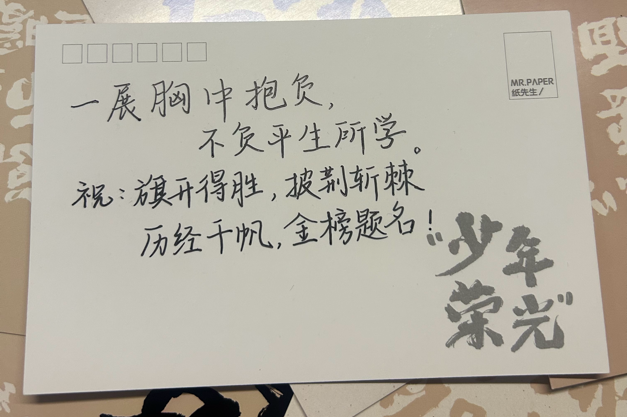 MR.PAPER
纸先生/
一展胸中抱负,
不负平生所学。
祝:旗开得胜,披荆斩棘
历经千帆,金榜题名!
“少年
荣光”